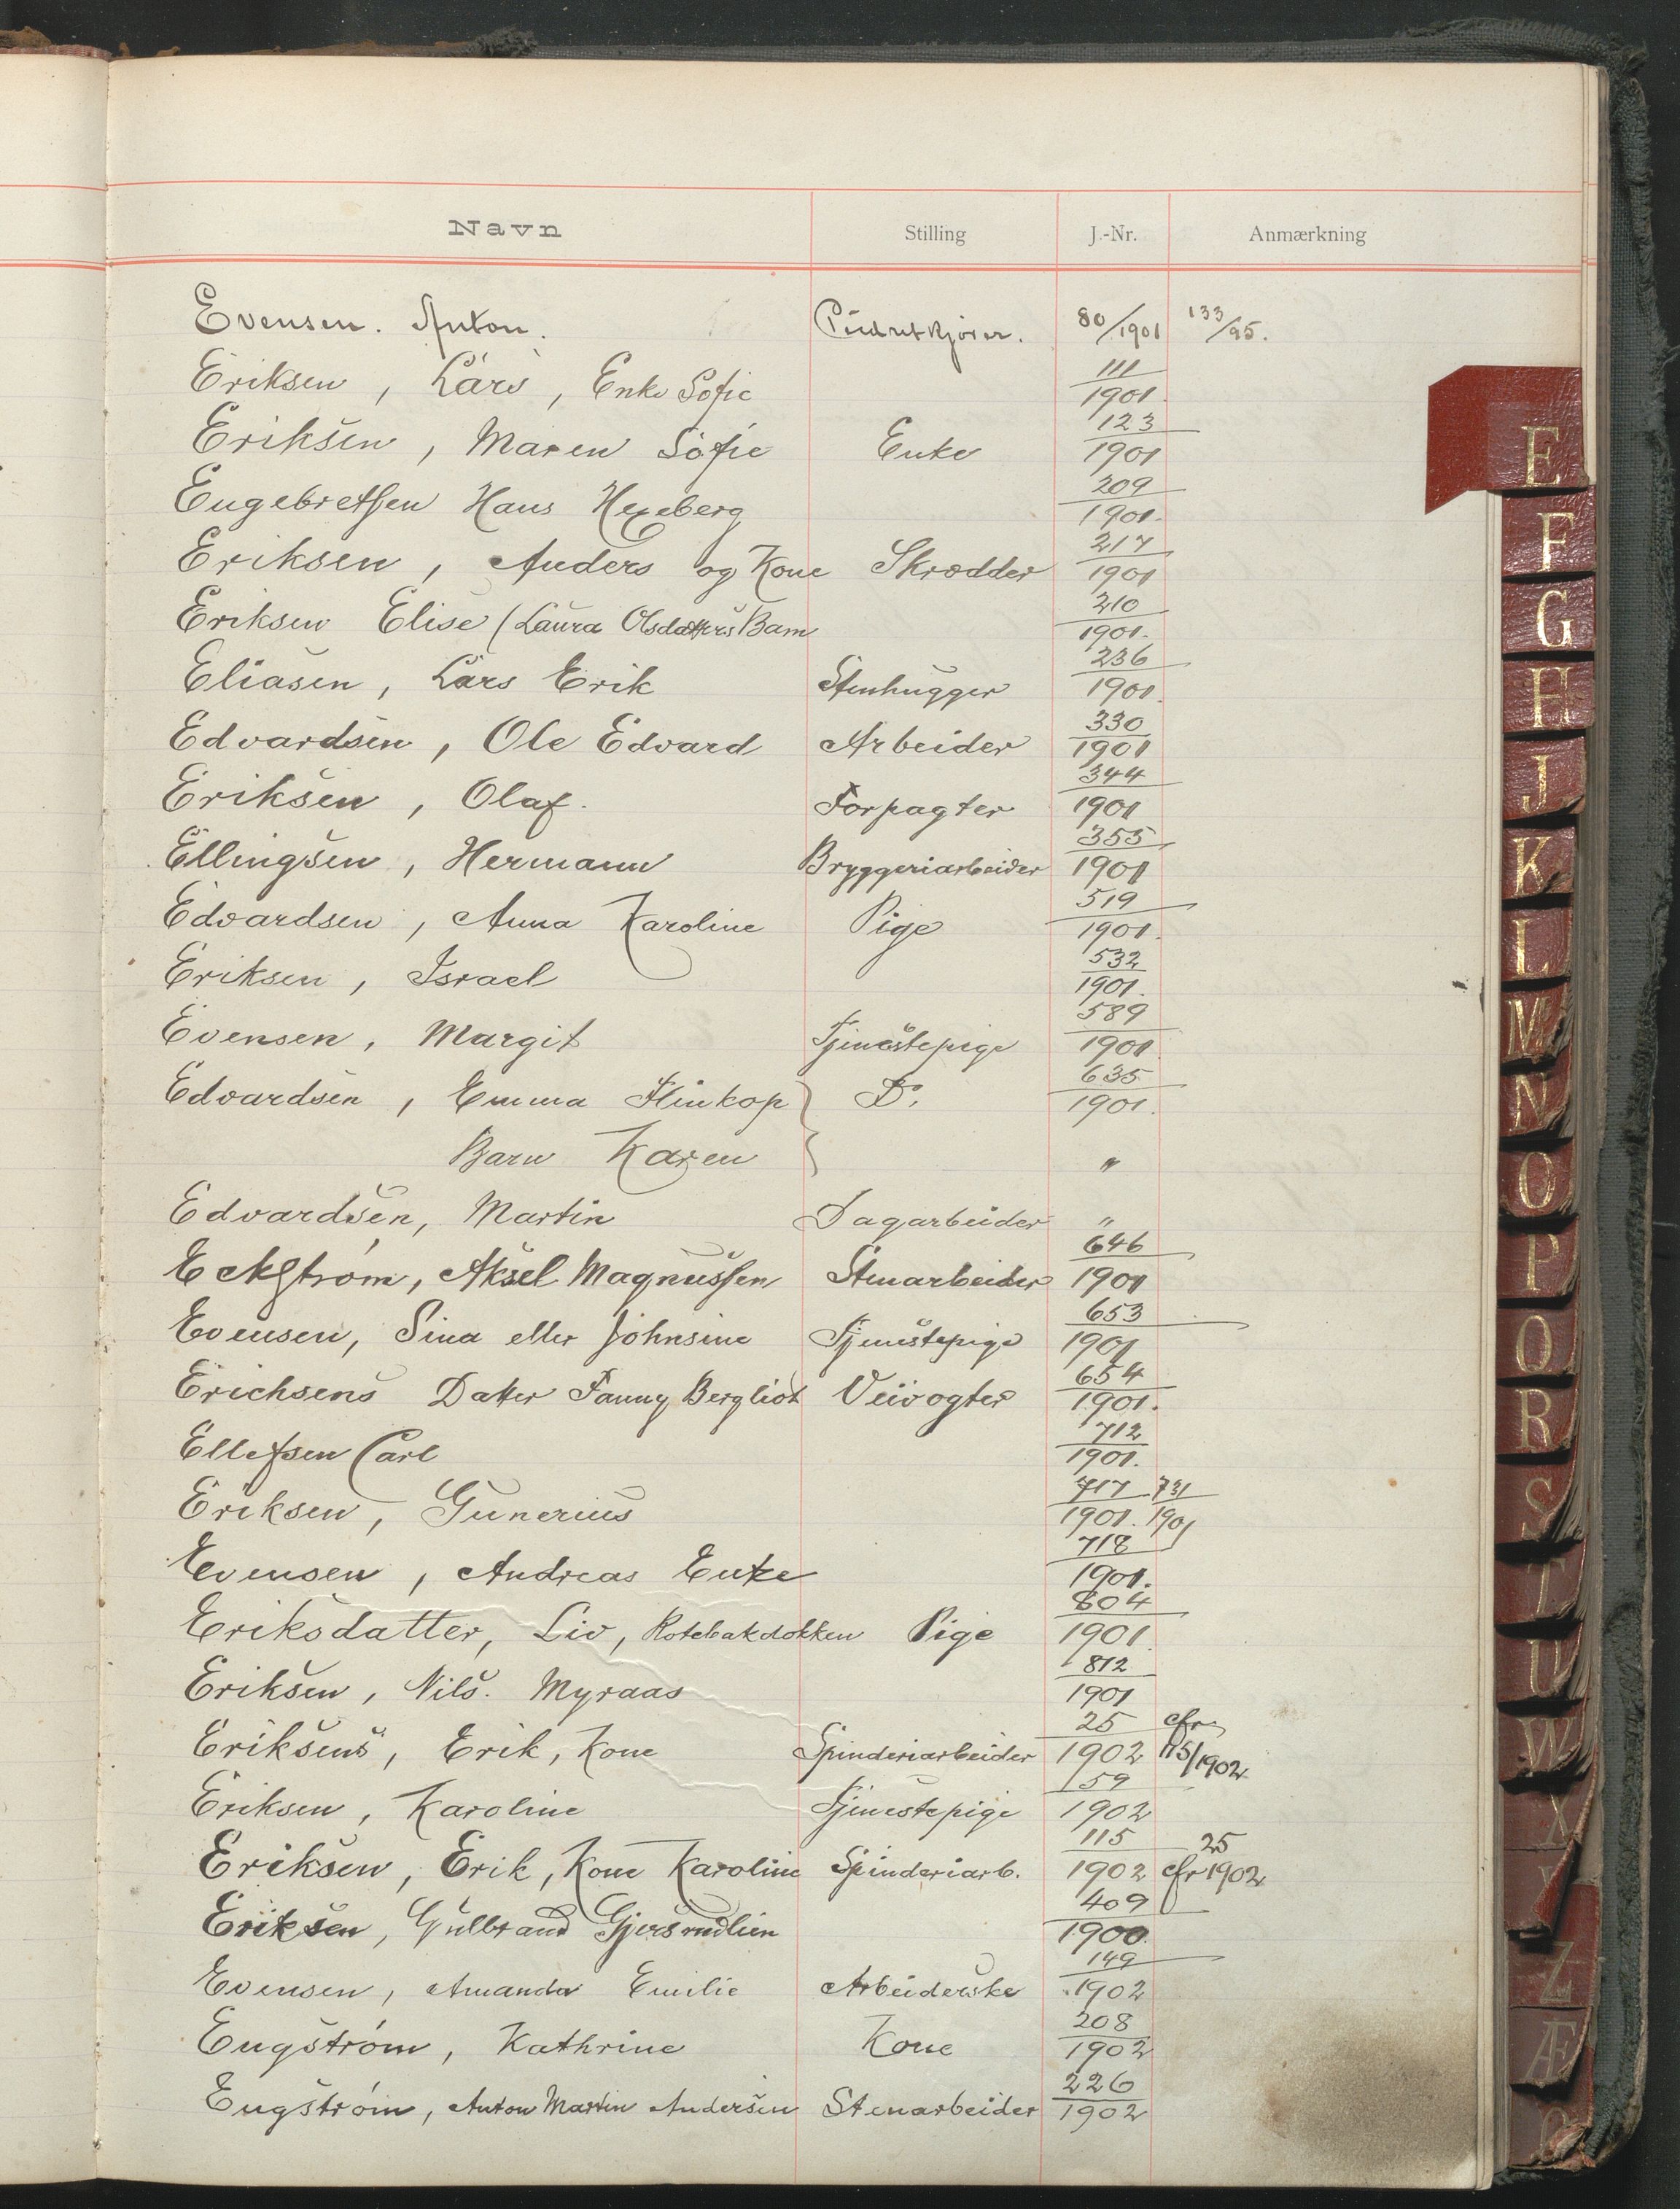 Navn Stilling J.-Nr. Anmærkning
Evensen. Anton. Pudretkjører. 80/1901 133/95.
Eriksen, Lars, Enke Sofie 111/1901.
Eriksen, Maren Sofie Enke 123/1901
Engebretsen Hans Hexeberg 209/1901.
Eriksen, Anders og Kone Skrædder 217/1901
Eriksen Elise (Laura Olsdatters Barn 210/1901.
Eliasen, Lars Erik Stenhugger 236/1901.
Edvardsen, Ole Edvard Arbeider 330/1901
Eriksen, Olaf. Forpagter 344/1901
Ellingsen, Hermann Bryggeriarbeider 355/1901
Edvardsen, Anna Karoline Pige 519/1901.
Eriksen, Israel 532/1901.
Evensen, Margit Tjenestepige 589/1901
Edvardsen, Emma Flinkop } D°. 635/1901.
Barn Karen } "
Edvardsen, Martin Dagarbeider "
Eckström, Aksel Magnussen Stenarbeider 646/1901
Evensen, Sina eller Johnsine Tjenestepige 653/1901
Erichsens Datter Fanny Bergliot Veivogter 654/1901.
Ellefsen Carl 712/1901.
Eriksen, Gunerius 717/1901. 731/1901
Evensen, Andreas Enke 718/1901.
Eriksdatter, Liv, Rotebakdokken Pige 804/1901.
Eriksen, Nils. Myraas 812/1901
Eriksens, Erik, Kone Spinderiarbeider 25/1902 cfr 115/1902
Eriksen, Karoline Tjenestepige 59/1902
Eriksen, Erik, Kone Karoline Spinderiarb. 115/1902 cfr 25/1902
Eriksen, Gulbrand Gjersrudlien 409/1900.
Evensen, Amanda Emilie Arbeiderske 149/1902
Engström, Kathrine Kone 208/1902
Engström, Anton Martin Andersen Stenarbeider 226/1902
E
F
G
H
J
K
L
M
N
O
P
Q
R
S
T
U
W
X
Y
Z
Æ
Ø